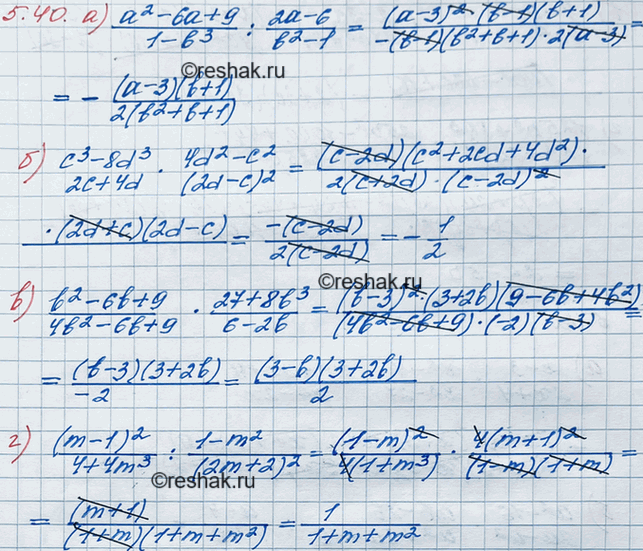 5.40. а) (a²-6a+9)/(1-b³) : (2a-6)/(b²-1) = ((a-3)²(b-1)(b+1))/(-(b-1)(b²+b+1)·2(a-3)) =
©reshak.ru
= - ((a-3)(b+1))/(2(b²+b+1))
б) (c³-8d³)/(2c+4d) · (4d²-c²)/(2d-c)² = ((c-2d)(c²+2cd+4d²)·)/(2(c+2d)·(c-2d)²)
·(2d+c)(2d-c) = (-(c-2d))/(2(c-2d)) = - 1/2
©reshak.ru
в) (b²-6b+9)/(4b²-6b+9) · (27+8b³)/(6-2b) = ((b-3)²·(3+2b)(9-6b+4b²))/((4b²-6b+9)·(-2)(b-3)) =
= ((b-3)(3+2b))/(-2) = ((3-b)(3+2b))/2
г) (m-1)²/(4+4m³) : (1-m²)/(2m+2)² = (1-m)²/(4(1+m³)) · (4(m+1)²)/((1-m)(1+m)) =
©reshak.ru
= (m+1)/((1+m)(1+m+m²)) = 1/(1+m+m²)